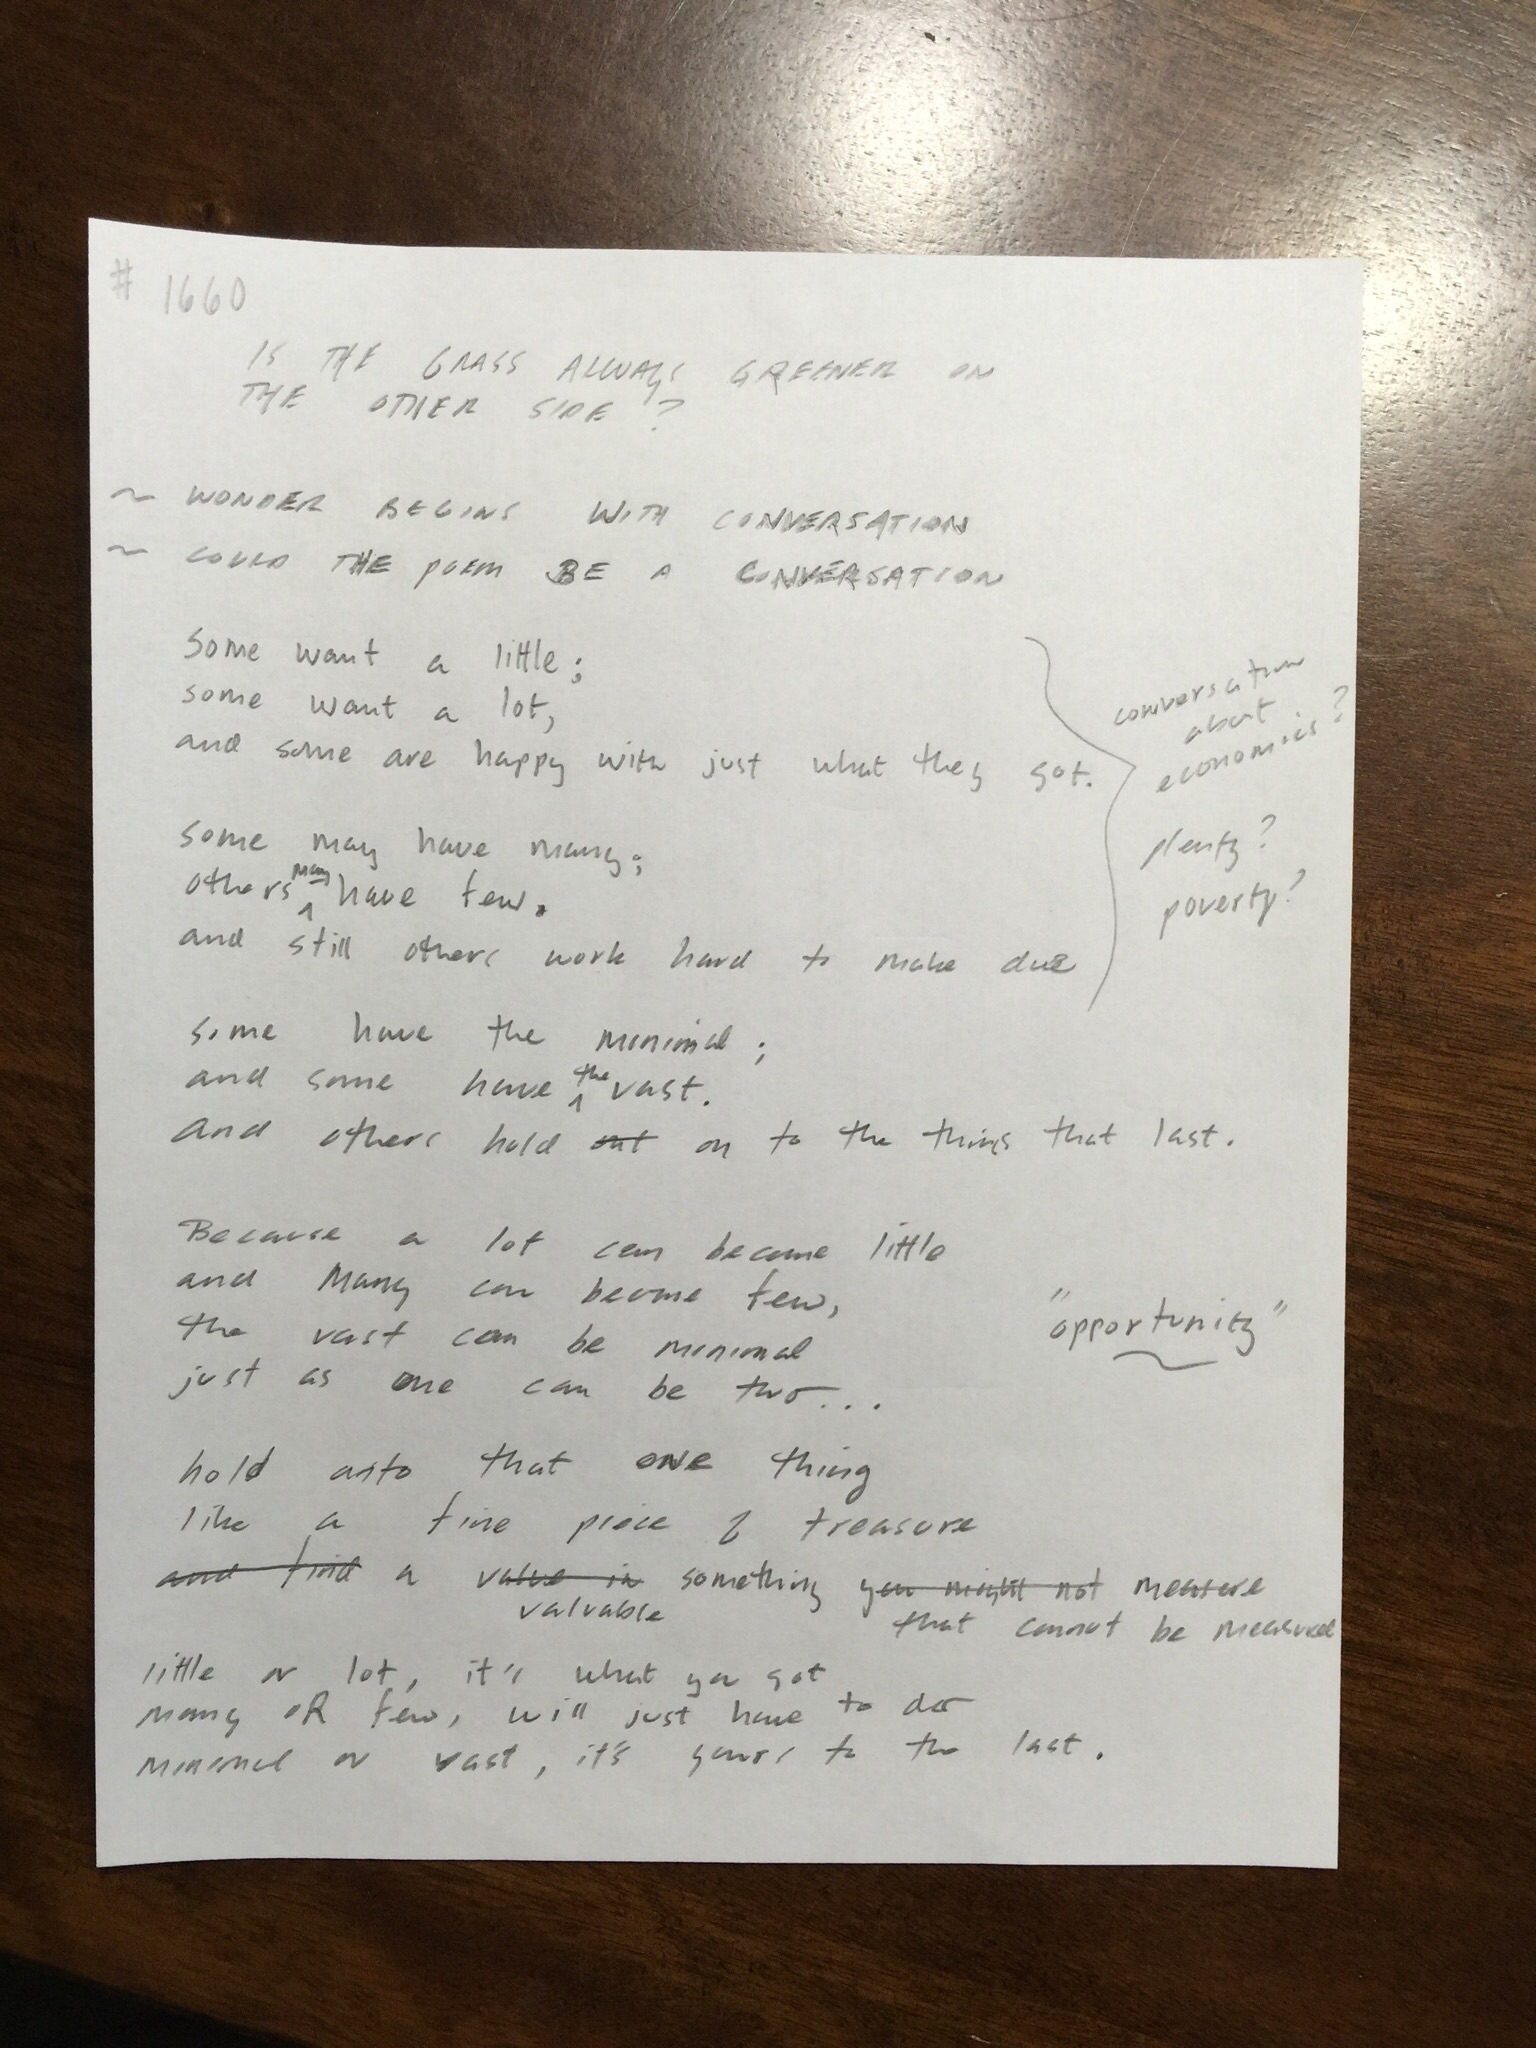 # 1660
IS THE GRASS ALWAYS GREENER ON
THE OTHER SIDE?
~ WONDER BEGINS WITH CONVERSATION
~ COULD THE POEM BE A CONVERSATION
Some want a little;
some want a lot,
and some are happy with just what they got.
conversation
about
economics?
plenty?
poverty?
some may have many;
others may have few.
and still others work hard to make due
some have the minimal;
and some have the vast.
and others hold out on to the things that last.
Because a lot can become little
and Many can become few,
the vast can be minimal
just as one can be two...
"opportunity"
hold onto that ONE thing
like a fine piece of treasure
and find a value in something you might not measure
valuable that cannot be measured
little or lot, it's what you got
many OR few, will just have to do
minimal or vast, it's yours to the last.